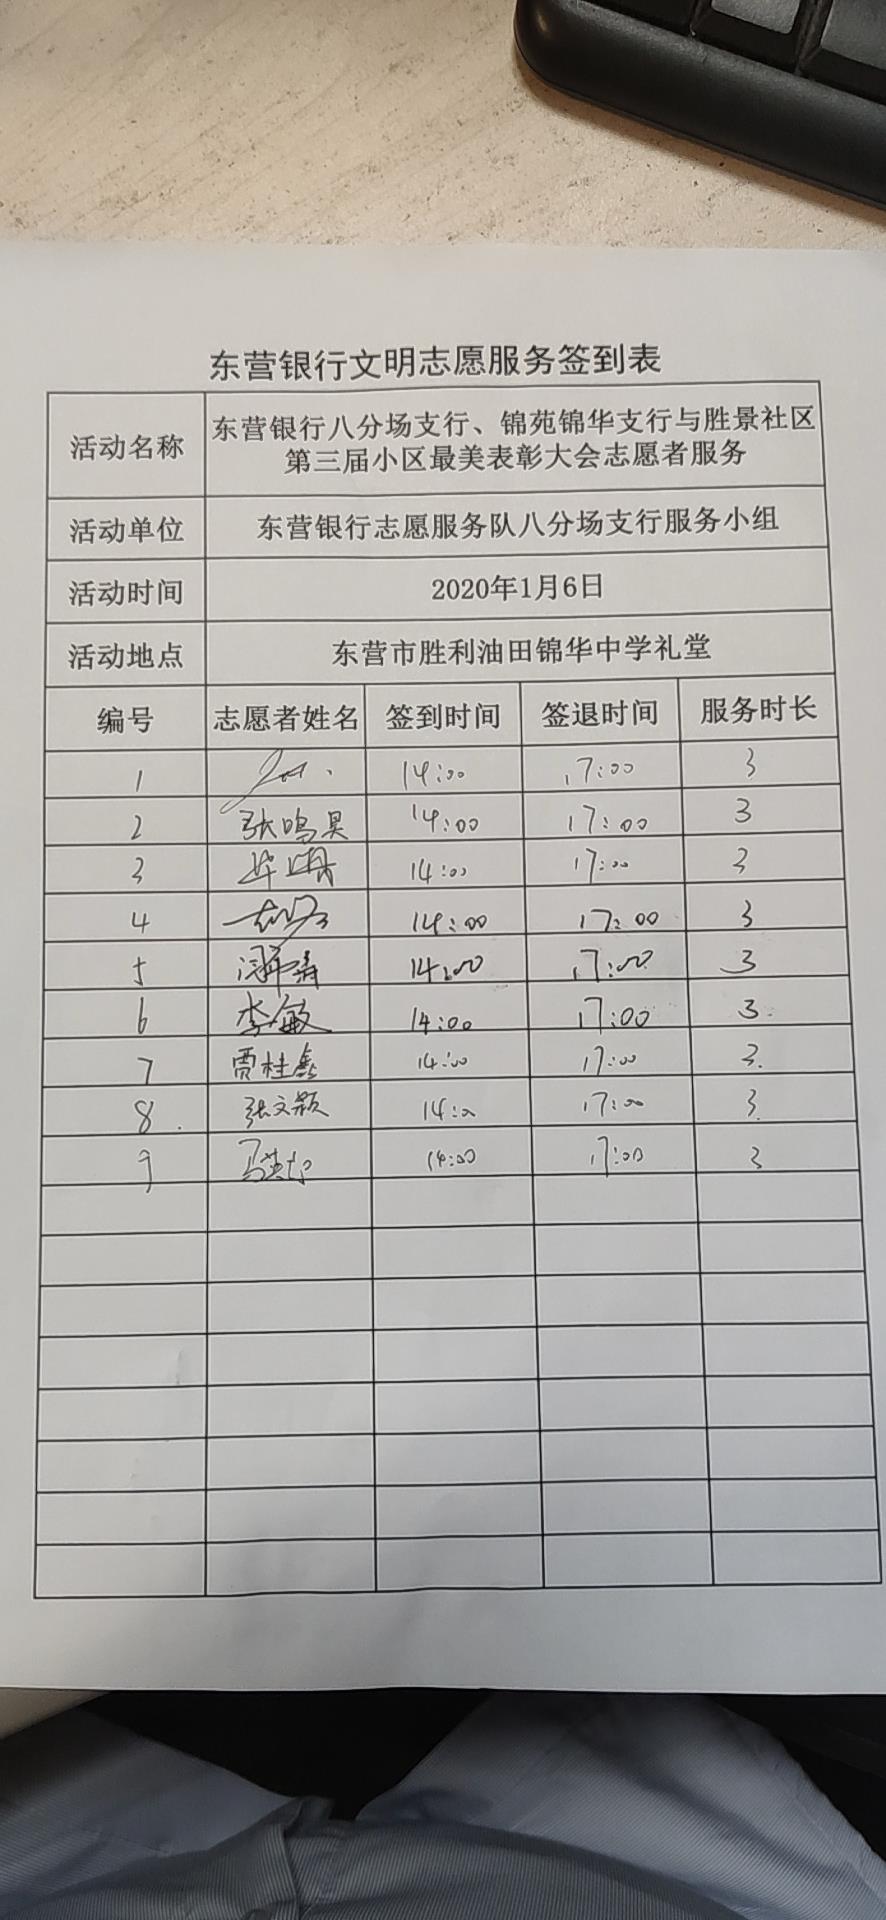 东营银行文明志愿服务签到表
活动名称 东营银行八分场支行、锦苑锦华支行与胜景社区
第三届小区最美表彰大会志愿者服务
活动单位 东营银行志愿服务队八分场支行服务小组
活动时间 2020年1月6日
活动地点 东营市胜利油田锦华中学礼堂
编号 志愿者姓名 签到时间 签退时间 服务时长
1 14:00 17:00 3
2 张鸣昊 14:00 17:00 3
3 14:00 17:00 3
4 14:00 17:00 3
5 14:00 17:00 3
6 李敏 14:00 17:00 3
7 贾桂鑫 14:00 17:00 3
8 张文颖 14:00 17:00 3
9 14:00 17:00 3